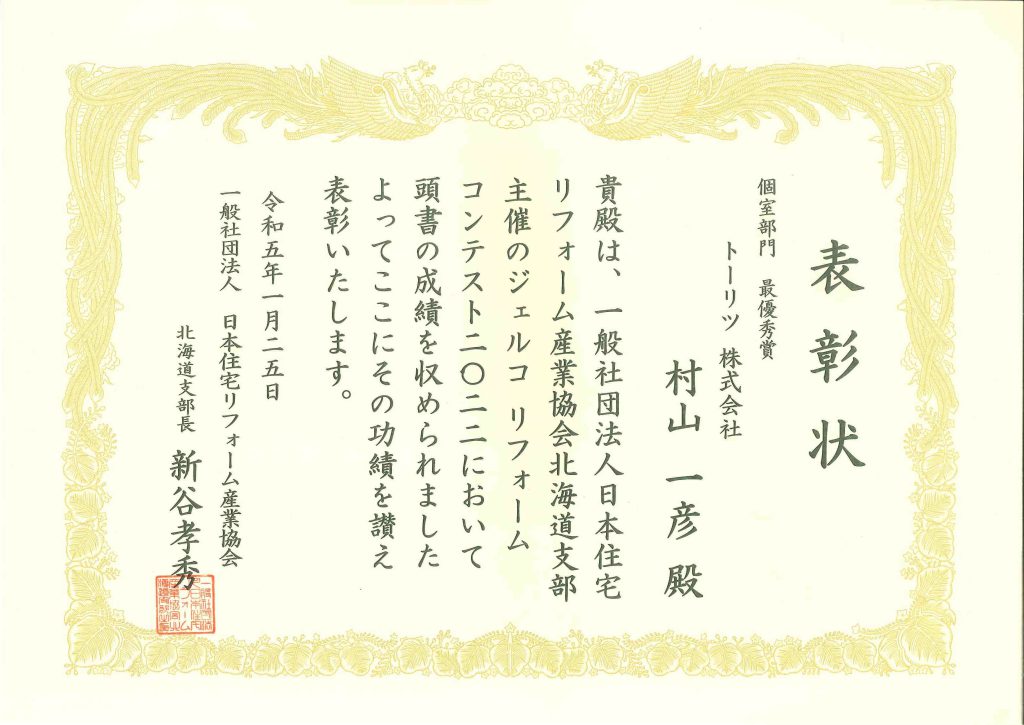 表彰状
個室部門　最優秀賞
トーリツ　株式会社
村山　一彦　殿
貴殿は、一般社団法人日本住宅
リフォーム産業協会北海道支部
主催のジェルコ リフォーム
コンテスト二〇二二において
頭書の成績を収められました
よってここにその功績を讃え
表彰いたします。
令和五年一月二五日
一般社団法人　日本住宅リフォーム産業協会
北海道支部長　新谷孝秀